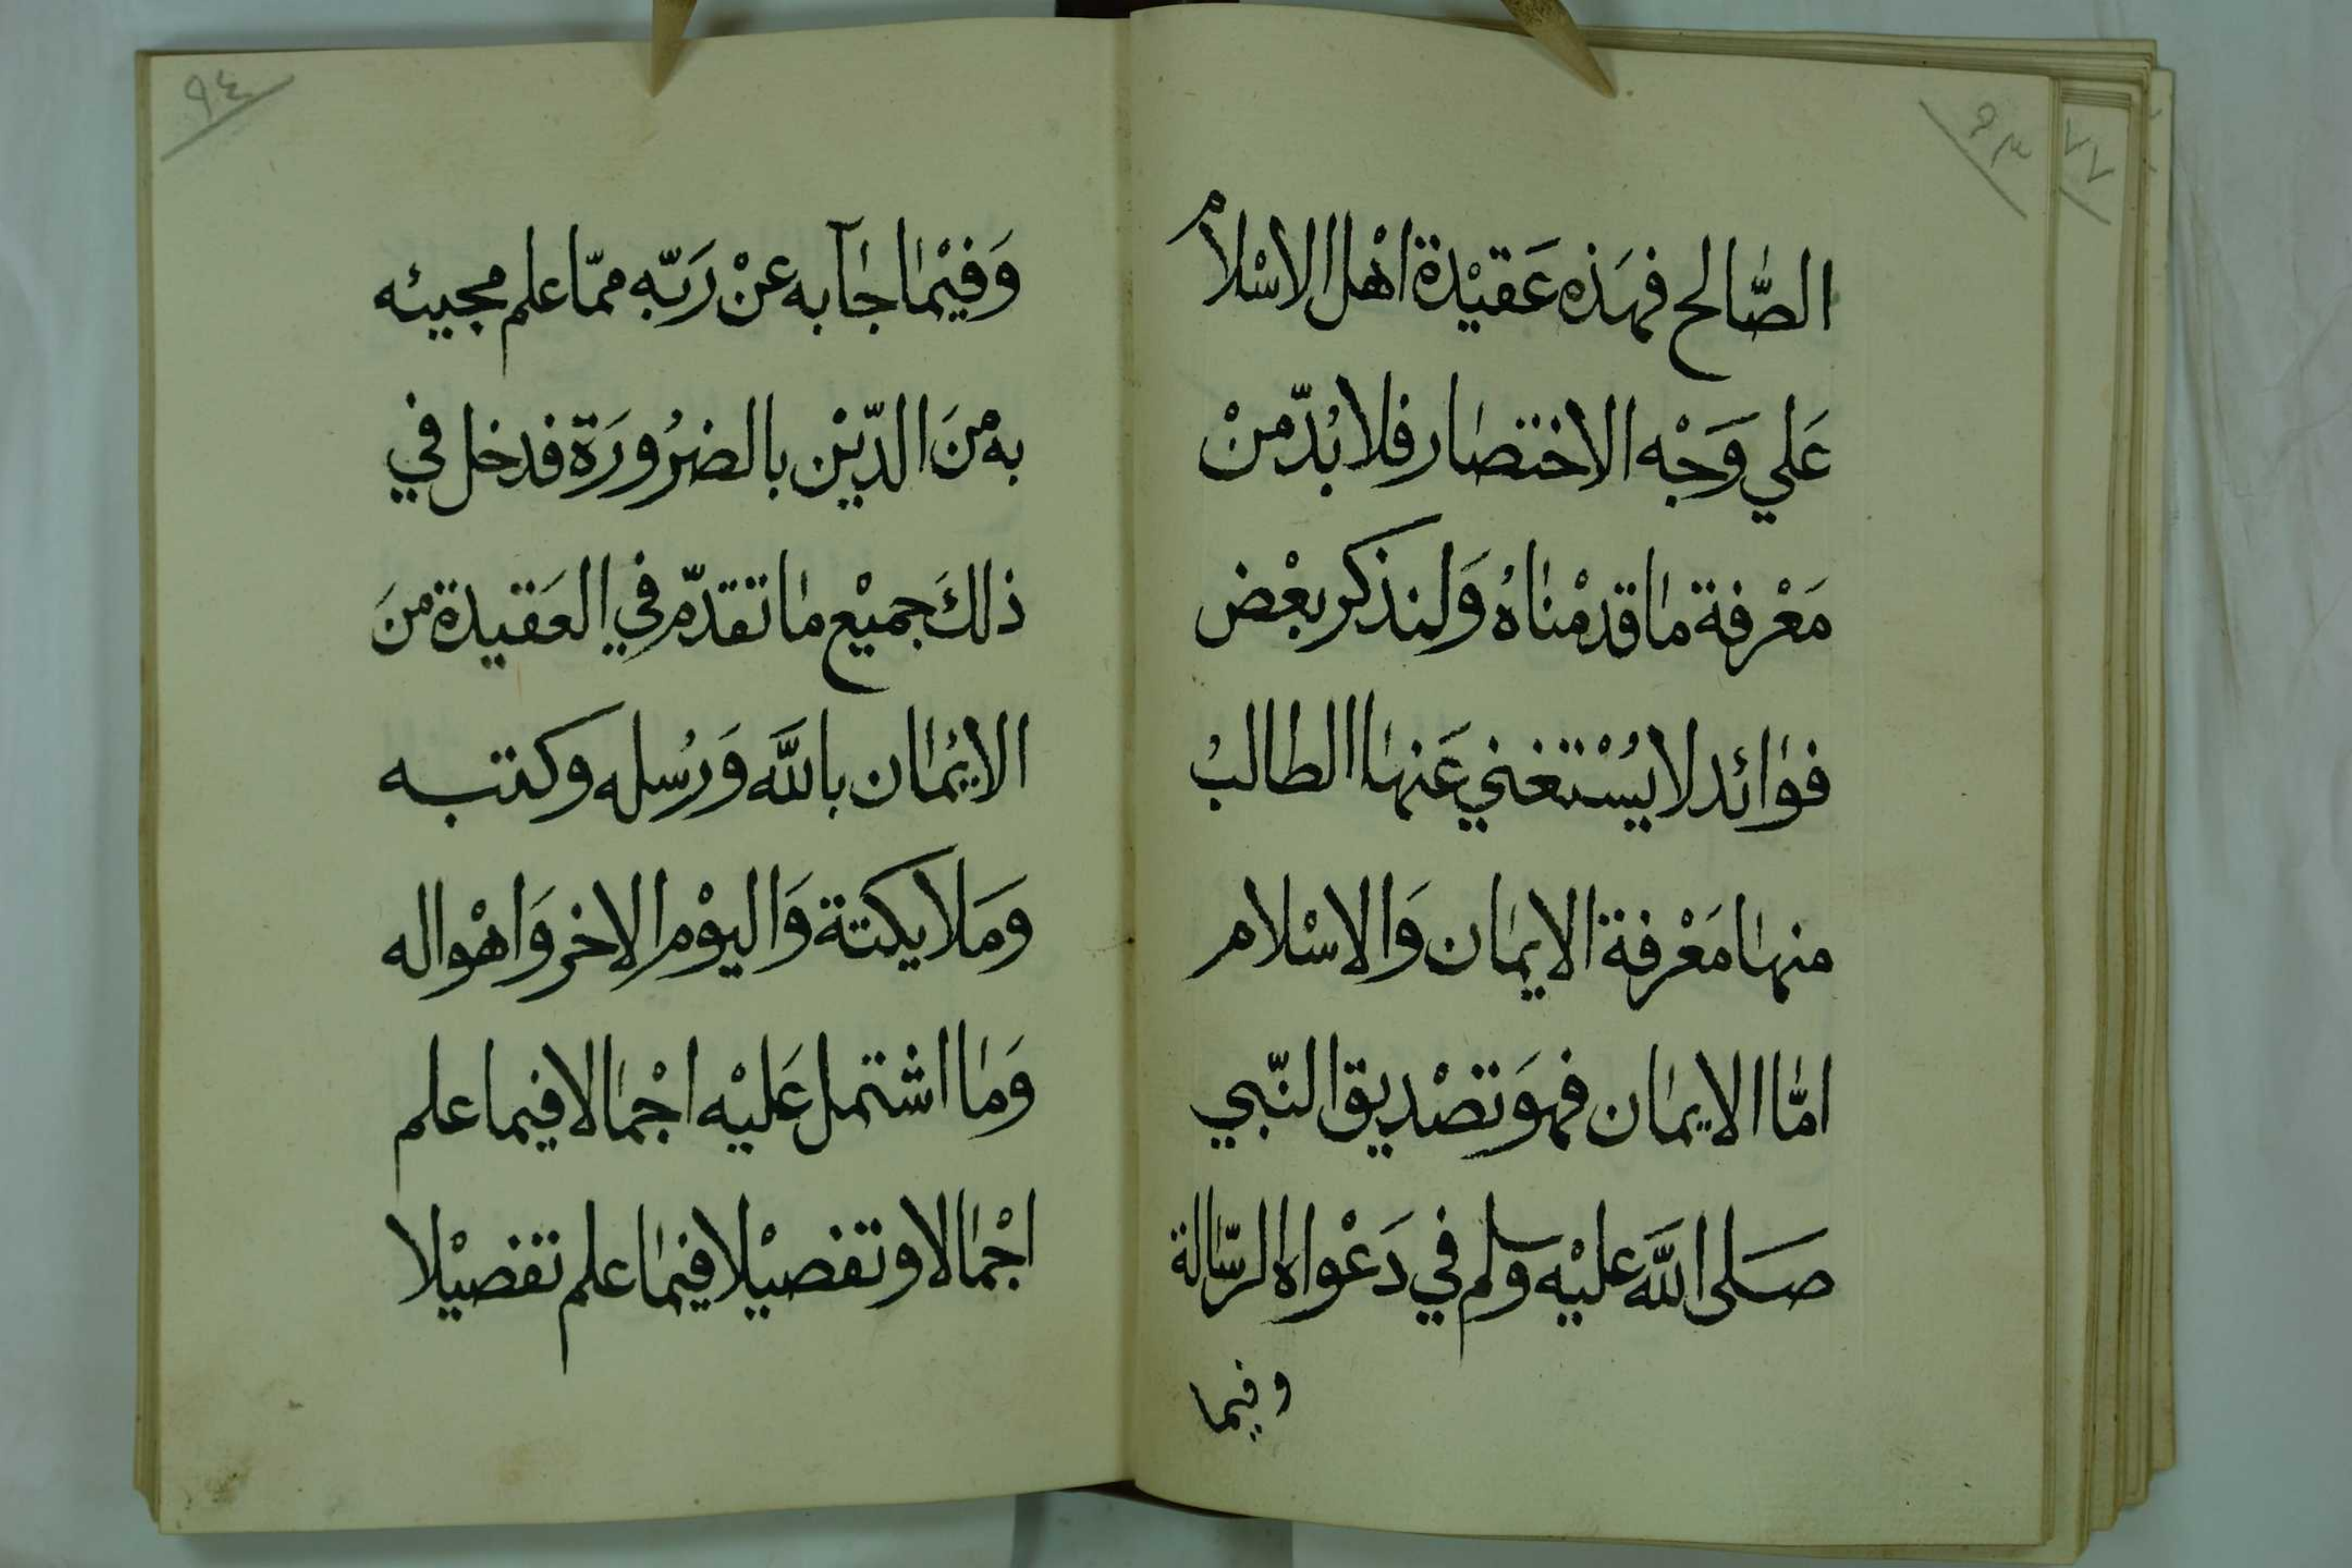 ٩٣
٧٧
الصَّالح فهَذه عَقيْدة اهْل الاسْلام
عَلي وَجْه الاختصَار فلا بُدّ منْ
مَعْرفة مَا قدمْناهُ وَلنذكر بعْض
فوَائد لا يسُتغني عَنهَا الطالبُ
منهَا مَعْرفة الايمَان وَالاسْلام
امَّا الايمَان فهوَ تصْديق النّبي
صَلى اللَّه عليْه وسلم في دَعْواه الرّسَالة
وفيما
٩٤
وَفيْمَا جَآ به عنْ رَبّه ممّا علم مجيئه
به منَ الدّيْن بالضرُورَة فدخل في
ذلكَ جميْع مَا تقدّم في العَقيدة منَ
الايْمَان باللَّه وَرُسله وكتبه
ومَلايكتة وَاليوْم الاخر وَاهْواله
وَمَا اشتمل عَليْه اجْمَالا فيما علم
اجْمَالا وتفصيْلا فيمَا علم تفصيْلا